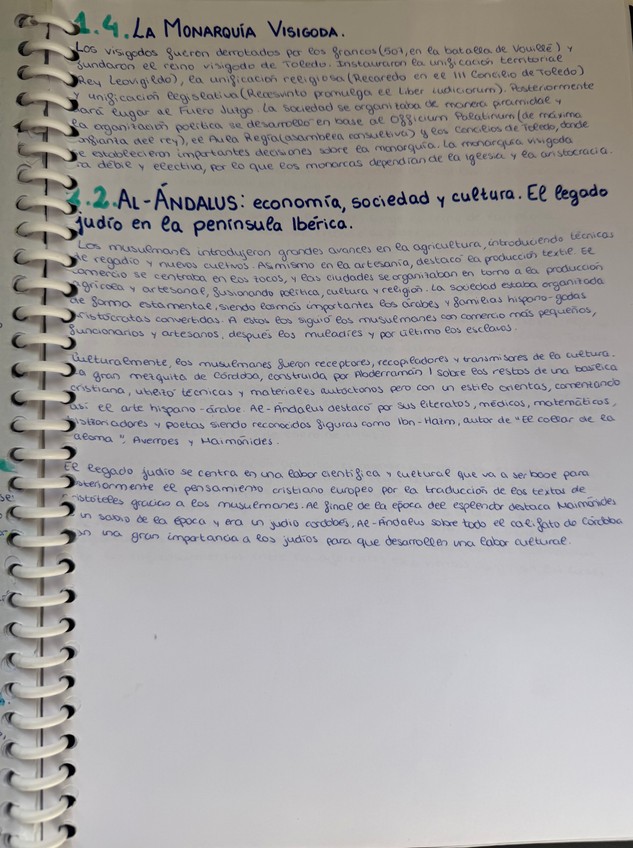 1.4. LA MONARQUÍA VISIGODA.
Los visigodos fueron derrotados por los francos (507, en la batalla de Vouillé) y
fundaron el reino visigodo de Toledo. Instauraron la unificación territorial
(Rey Leovigildo), la unificación religiosa (Recaredo en el III Concilio de Toledo)
y unificación legislativa (Recesvinto promulga el Liber Iudiciorum). Posteriormente
dará lugar al Fuero Juzgo. La sociedad se organitaba de manera piramidal y
la organización política se desarrolló en base al Officium Palatinum (de máxima
confianza del rey), el Aula Regia (asamblea consultiva) y los Concilios de Toledo, donde
se establecieron importantes decisiones sobre la monarquía. La monarquía visigoda
era débil y electiva, por lo que los monarcas dependían de la Iglesia y la aristocracia.
2.2. AL-ÁNDALUS: economía, sociedad y cultura. El legado
judío en la península Ibérica.
Los musulmanes introdujeron grandes avances en la agricultura, introduciendo técnicas
de regadío y nuevos cultivos. Asimismo en la artesanía, destacó la producción textil. El
comercio se centraba en los zocos, y las ciudades se organizaban en torno a la producción
agrícola y artesanal, fusionando política, cultura y religión. La sociedad estaba organizada
de forma estamental, siendo los más importantes los árabes y familias hispano-godas
aristócratas convertidas. A estos los siguió los musulmanes con comercio más pequeños,
funcionarios y artesanos, después los muladíes y por último los esclavos.
Culturalmente, los musulmanes fueron receptores, recopiladores y transmisores de la cultura.
La gran mezquita de Córdoba, construida por Abderramán I sobre los restos de una basílica
cristiana, utilizó técnicas y materiales autóctonos pero con un estilo oriental, comentando
así el arte hispano-árabe. Al-Ándalus destacó por sus literatos, médicos, matemáticos,
historiadores y poetas siendo reconocidas figuras como Ibn-Hazm, autor de "El collar de la
paloma", Averroes y Maimónides.
El legado judío se centra en una labor científica y cultural que va a ser base para
posteriormente el pensamiento cristiano europeo por la traducción de los textos de
Aristóteles gracias a los musulmanes. Al final de la época del esplendor destaca Maimónides
un sabio de la época y era un judío cordobés. Al-Ándalus sobre todo el califato de Córdoba
una gran importancia a los judíos para que desarrollen una labor cultural.